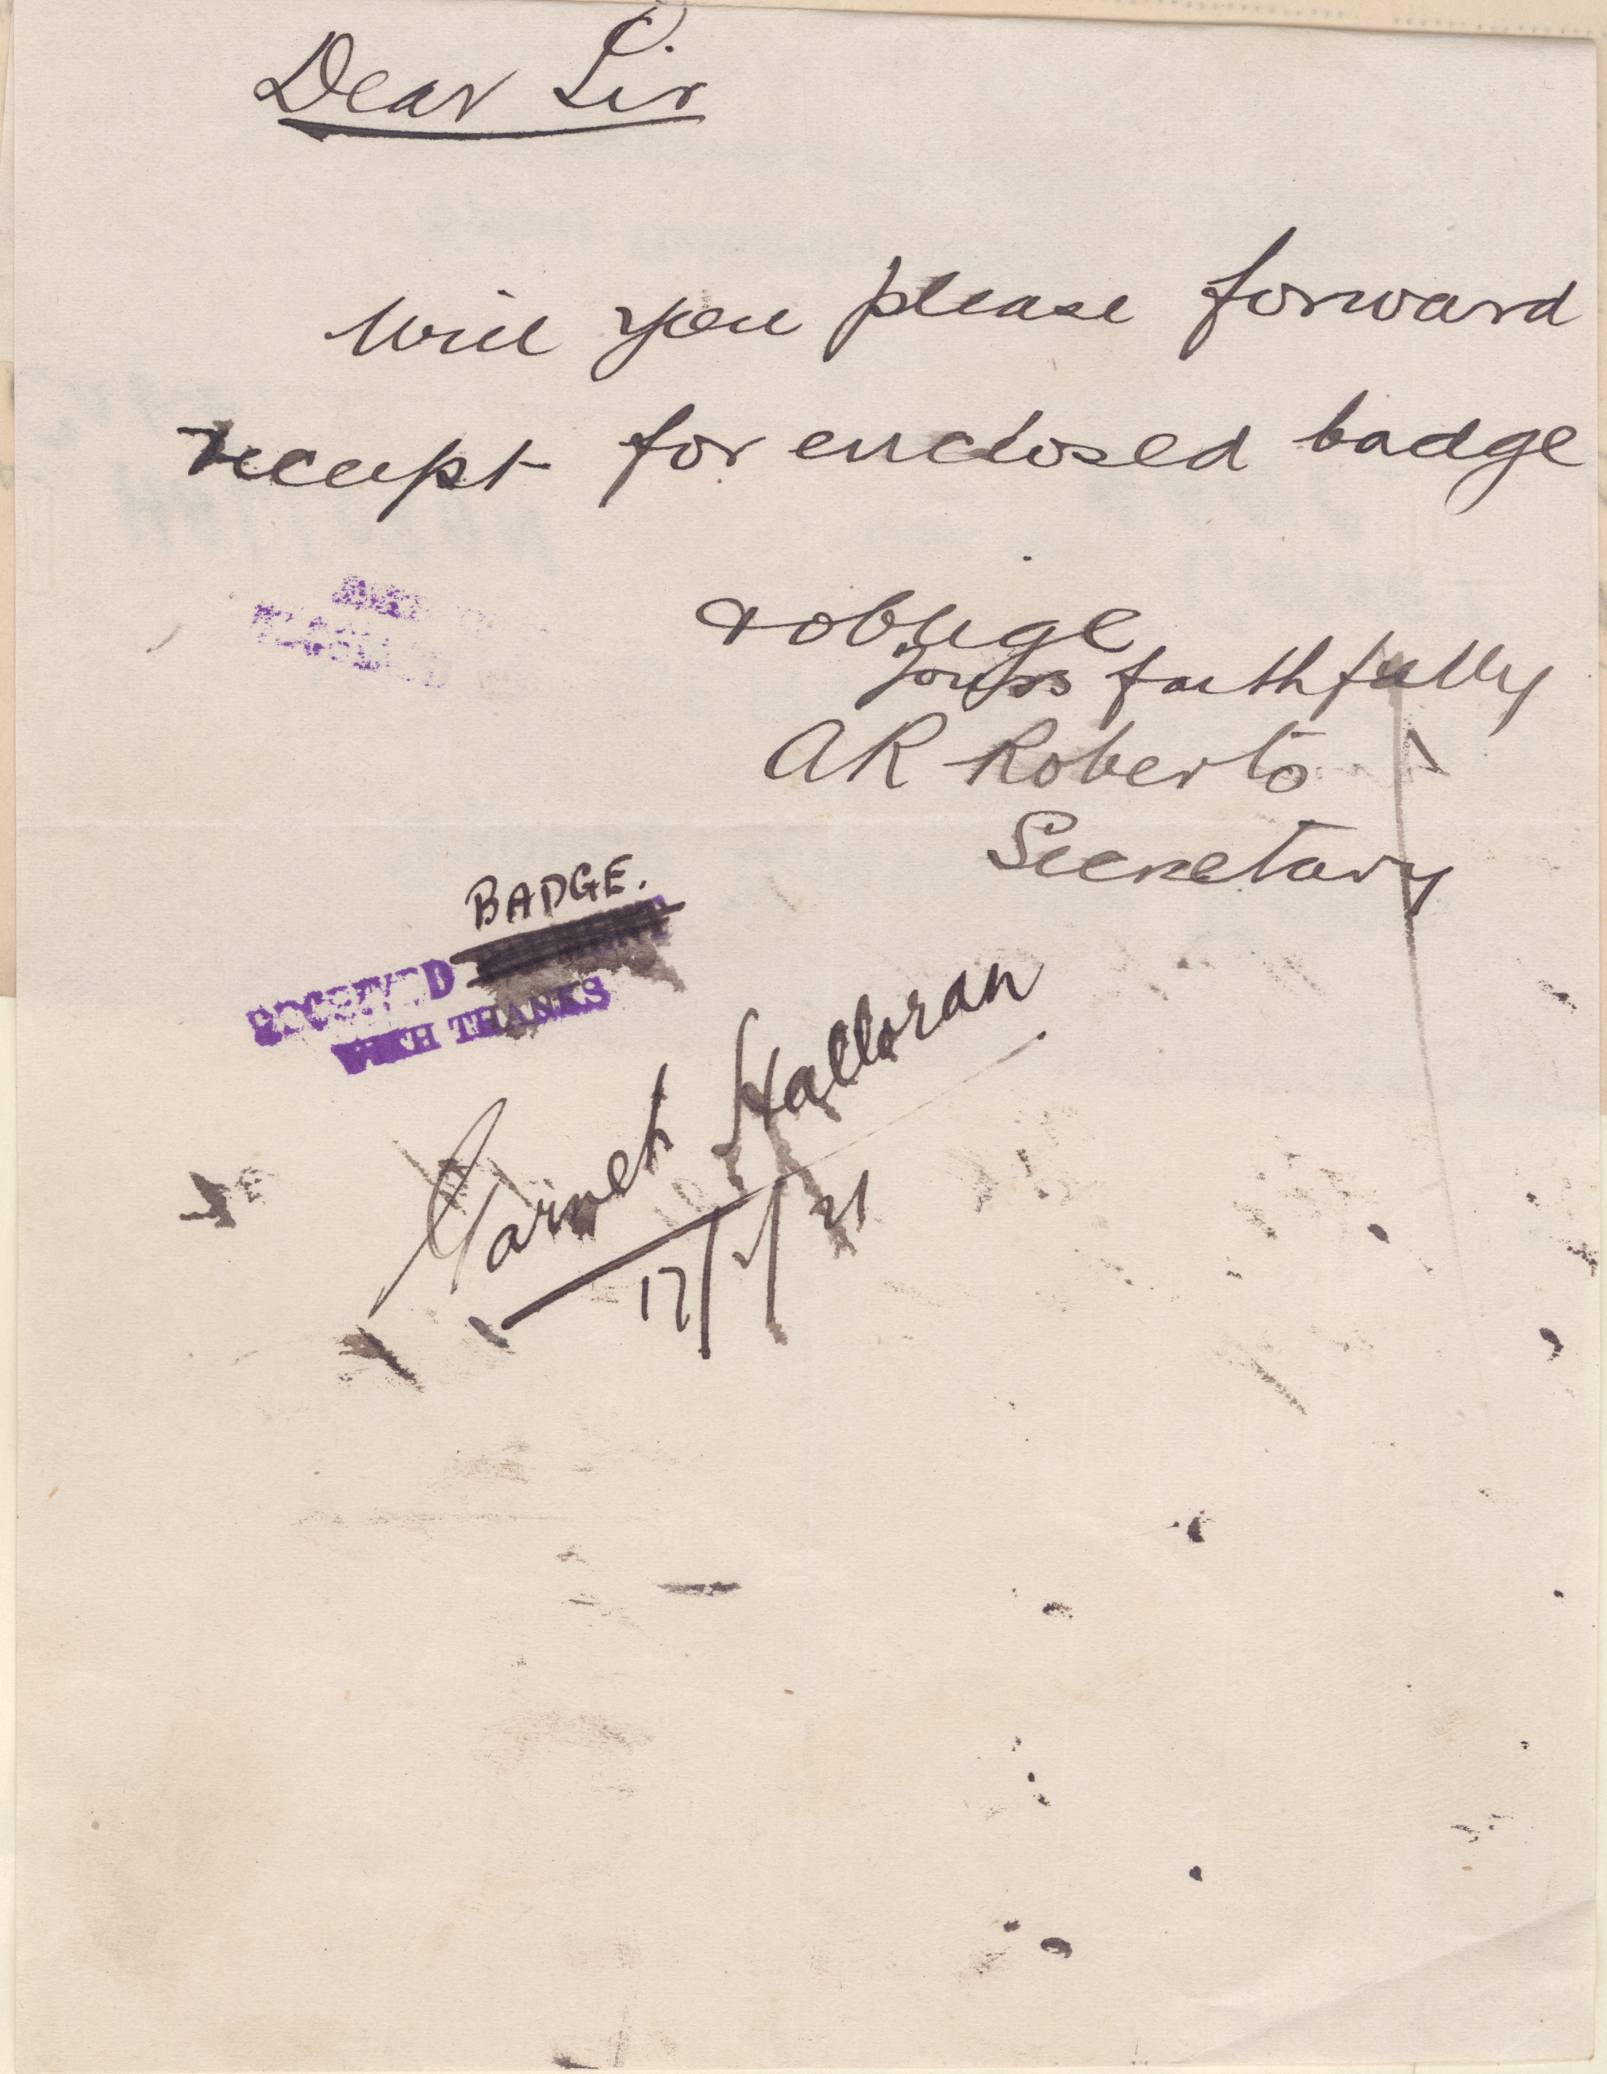 Dear Sir
Will you please forward
receipt for enclosed badge
& oblige
Yours faithfully
AR Roberts
Secretary
BADGE.
RECEIVED
WITH THANKS
Garnet Halloran
17/2/21